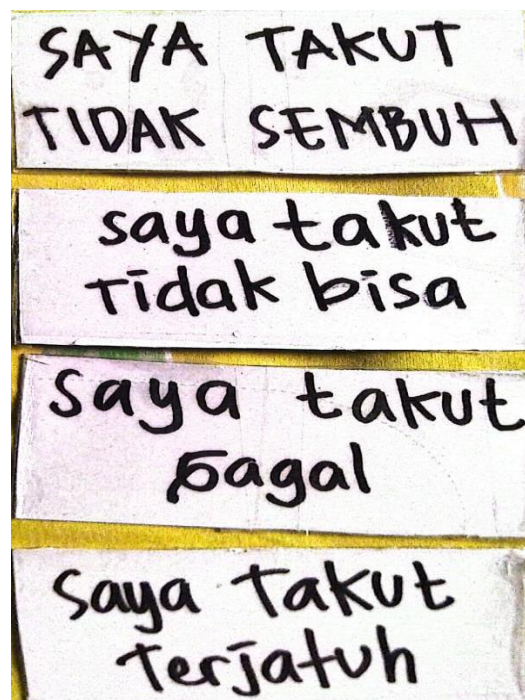 SAYA TAKUT
TIDAK SEMBUH
saya takut
Tidak bisa
saya takut
gagal
Saya Takut
Terjatuh